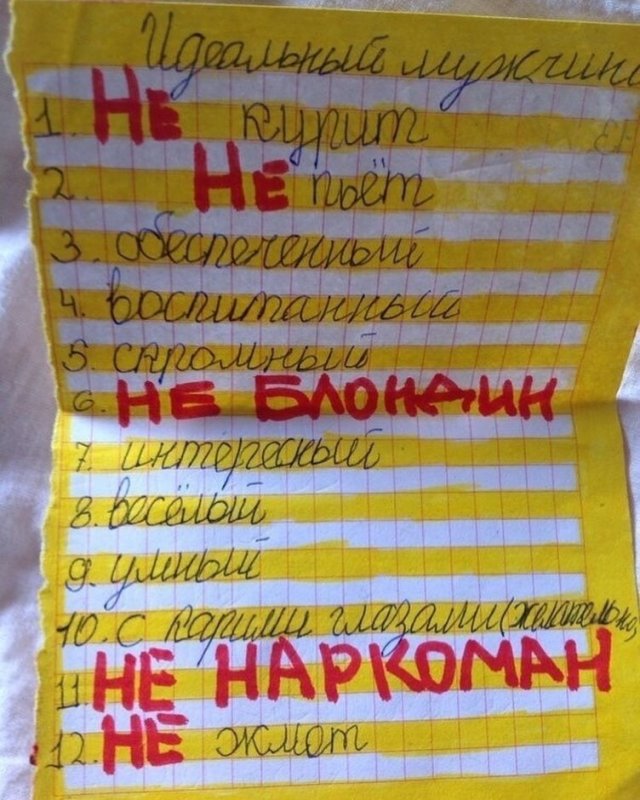 Идеальный мужчина
1. Не курит
2. Не пьёт
3. обеспеченный
4. воспитанный
5. скромный
6. НЕ БЛОНДИН
7. интересный
8. весёлый
9. умный
10. с карими глазами (желательно)
11. НЕ НАРКОМАН
12. НЕ жмот